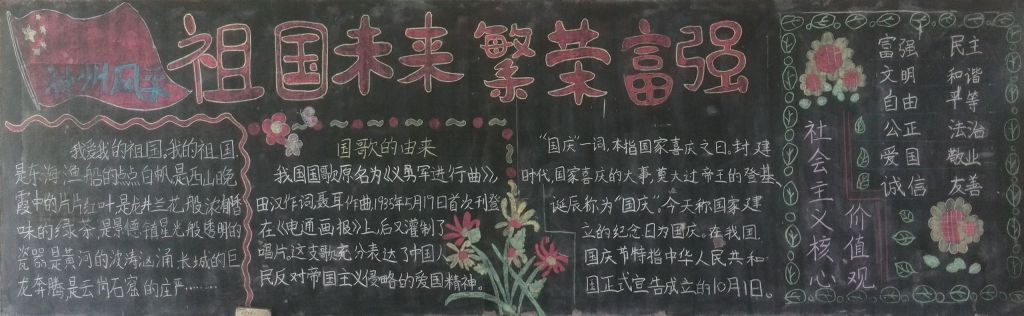 神州风采
祖国未来 繁荣富强
我爱我的祖国。我的祖国
是东海渔船的点点白帆是西山晚
霞中的片片红叶是龙井兰花般浓郁
味的绿茶是景德镇星光般透明的
瓷器是黄河的波涛汹涌长城的巨
龙奔腾是云岗石窟的庄严……
国歌的由来
我国国歌原名为《义勇军进行曲》,
田汉作词,聂耳作曲,1935年5月17日首次刊登
在《电通画报》上,后又灌制了
唱片,这支歌充分表达了中国人
民反对帝国主义侵略的爱国精神。
“国庆”一词,本指国家喜庆之日,封建
时代,国家喜庆的大事,莫大过帝王的登基、
诞辰称为“国庆”,今天称国家建
立的纪念日为国庆。在我国,
国庆节特指中华人民共和
国正式宣告成立的10月1日。
社会主义核心
价值观
富强 民主
文明 和谐
自由 平等
公正 法治
爱国 敬业
诚信 友善